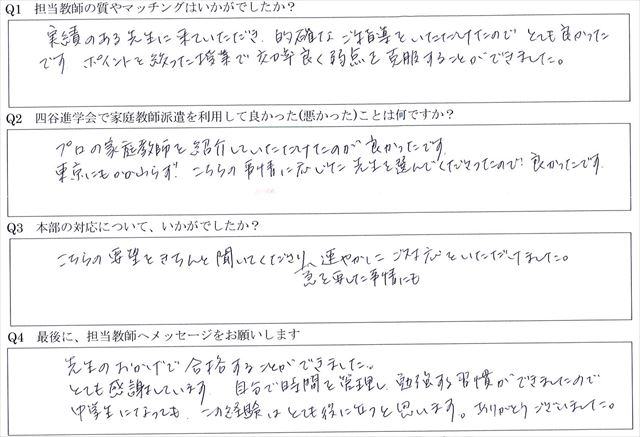 Q1 担当教師の質やマッチングはいかがでしたか？
実績のある先生に来ていただき、的確なご指導をいただけたので とても良かった
です ポイントを絞った授業で 効率良く弱点を克服することができました。
Q2 四谷進学会で家庭教師派遣を利用して良かった(悪かった)ことは何ですか？
プロの家庭教師を紹介していただけたのが良かったです
東京にもかかわらず、こちらの事情に応じた先生を選んでくださったので 良かったです
Q3 本部の対応について、いかがでしたか？
こちらの要望をきちんと聞いてくださり、速やかにご対応をいただけました。
急を要した事情にも
Q4 最後に、担当教師へメッセージをお願いします
先生のおかげで合格することができました。
とても感謝しています 自分で時間を管理し、勉強する習慣ができましたので
中学生になっても、この経験はとても役に立つと思います。ありがとうございました。